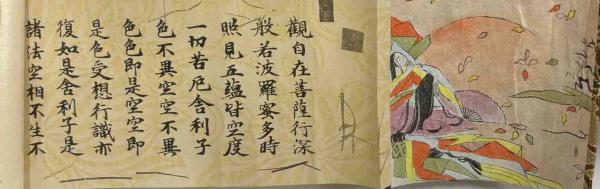 觀自在菩薩行深
般若波羅蜜多時
照見五蘊皆空度
一切苦厄舍利子
色不異空空不異
色色即是空空即
是色受想行識亦
復如是舍利子是
諸法空相不生不